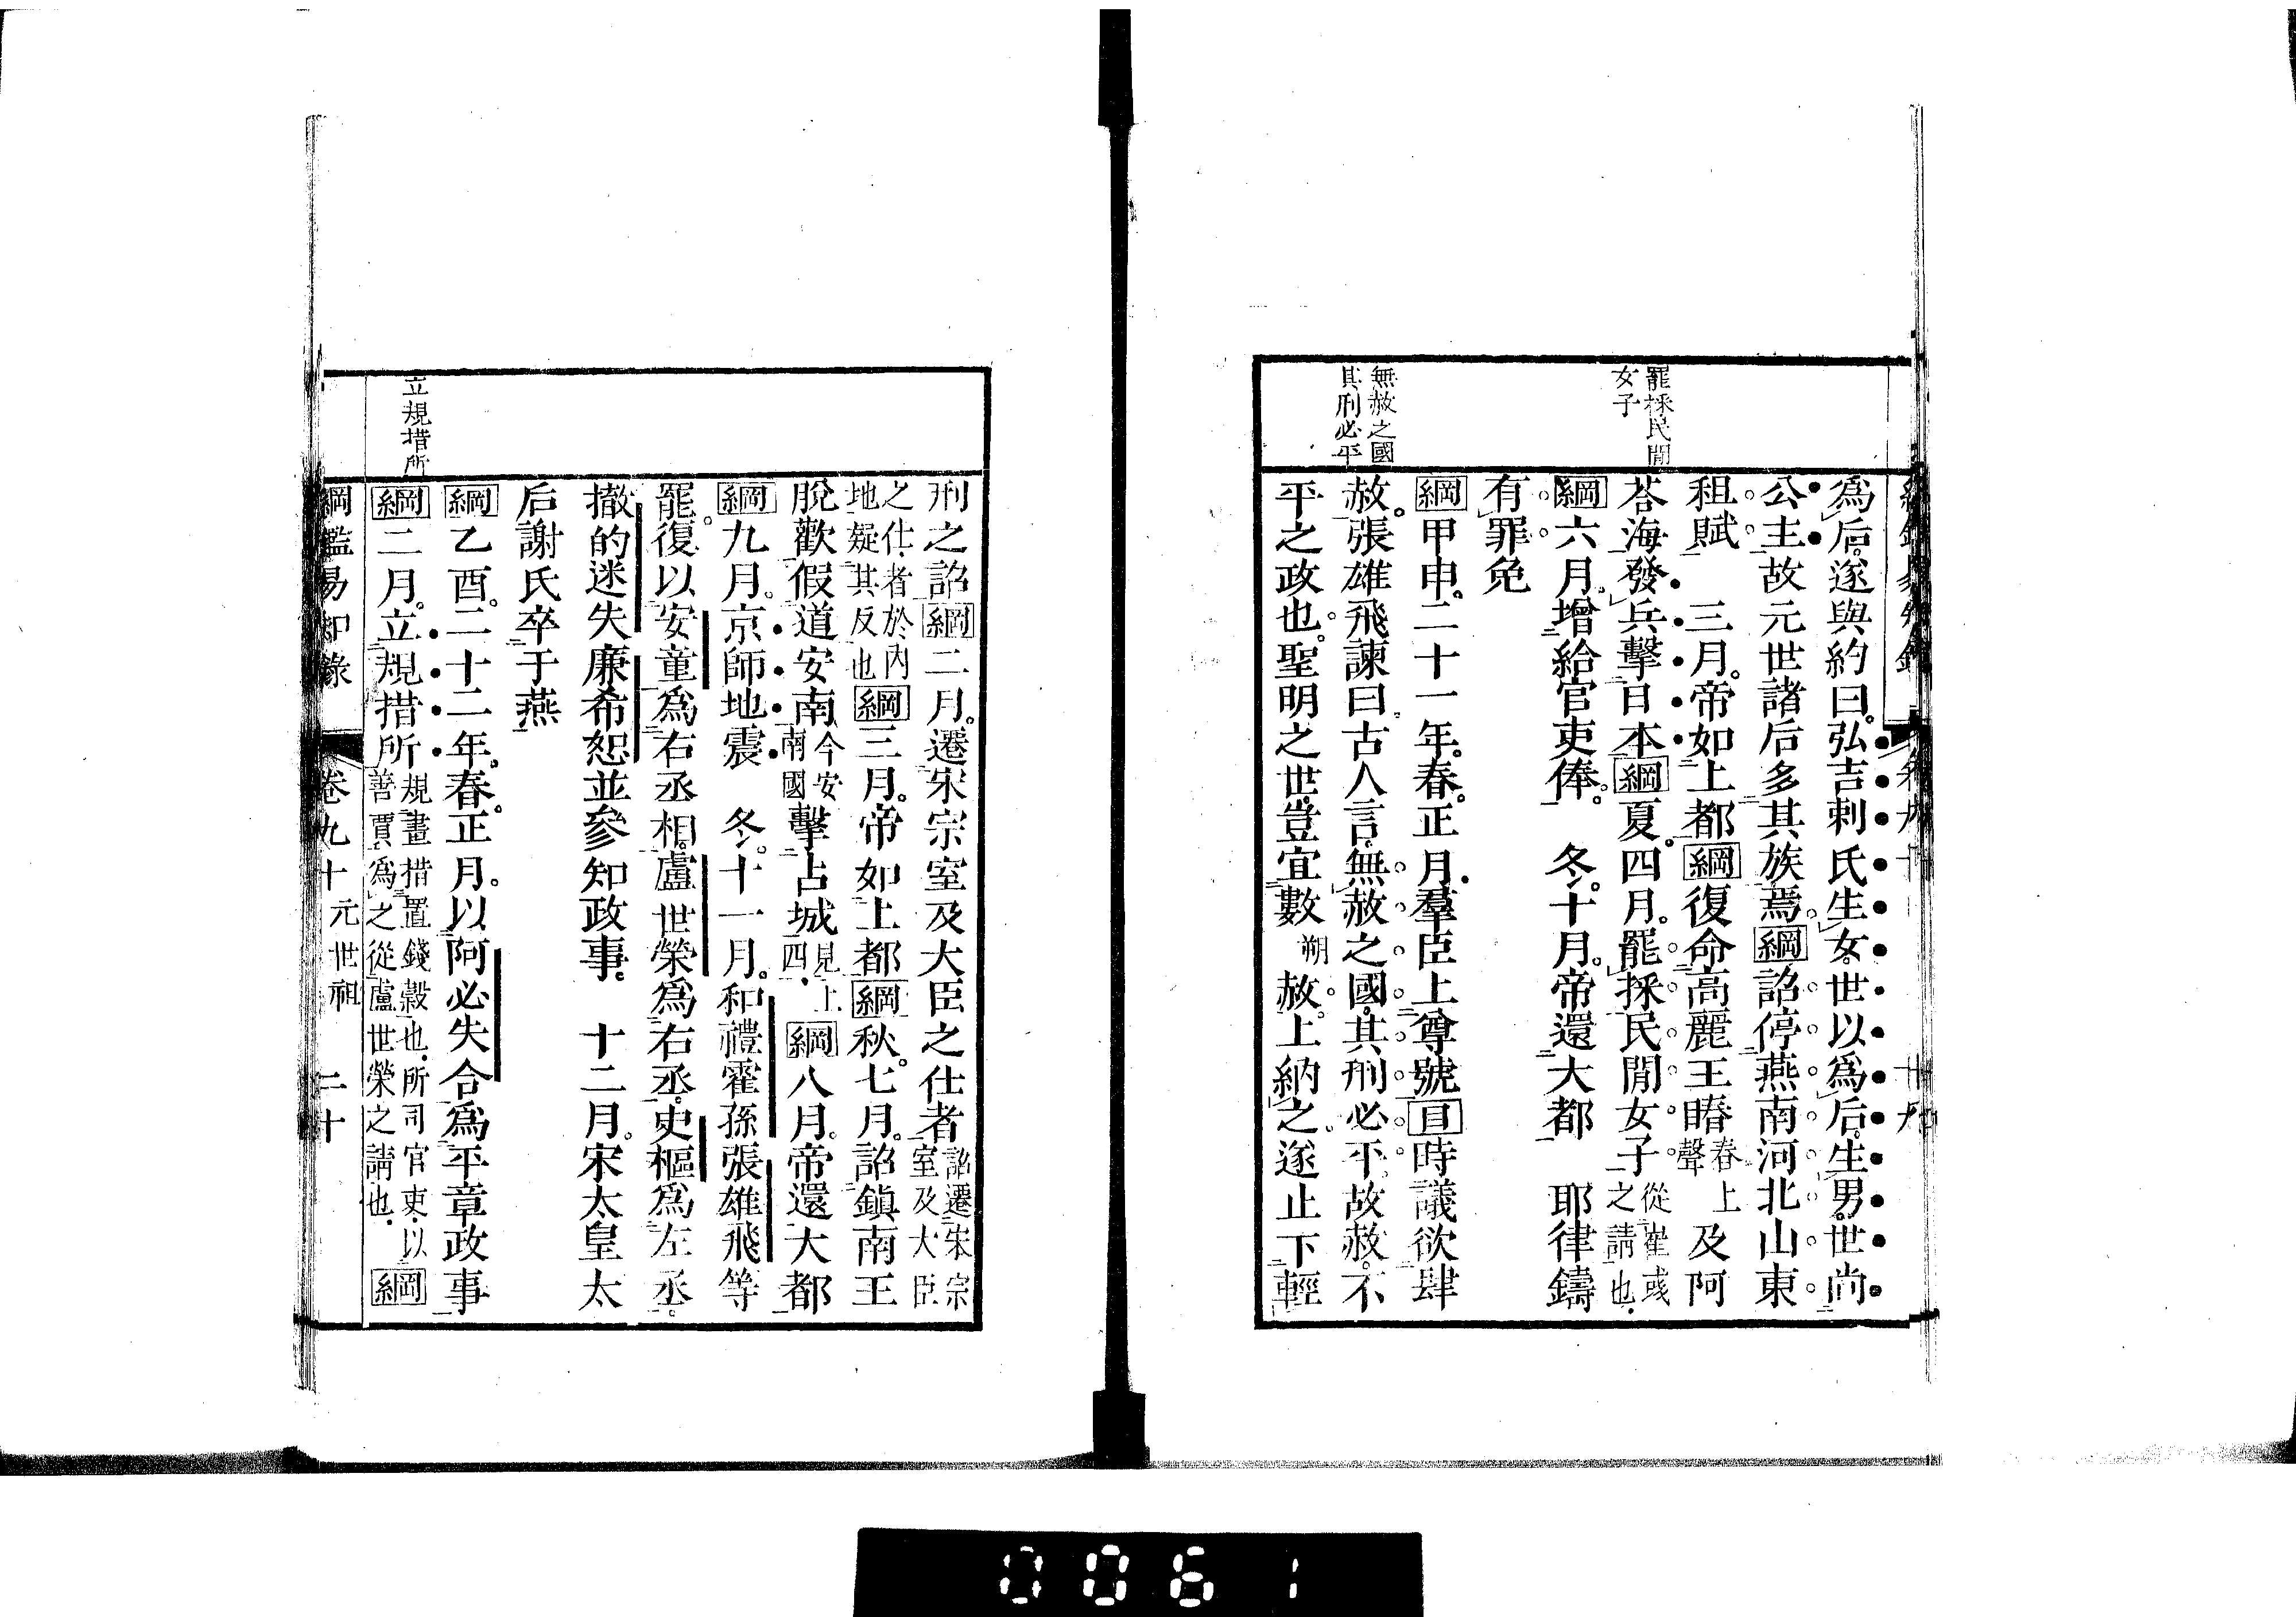 罷採民間
女子
無赦之國
其刑必平
為后遂與約曰弘吉剌氏生女世以為后生男世尚
公主故元世諸后多其族焉綱詔停燕南河北山東
租賦　三月帝如上都綱復命高麗王睶春上聲及阿
荅海發兵擊日本綱夏四月罷採民間女子從崔彧之請也
綱六月增給官吏俸　冬十月帝還大都　耶律鑄
有罪免
綱甲申二十一年春正月羣臣上尊號目時議欲肆
赦張雄飛諫曰古人言無赦之國其刑必平故赦不
平之政也聖明之世豈宜數朔赦上納之遂止下輕
立規措所
刑之詔綱二月遷宋宗室及大臣之仕者詔遷宋宗室及大臣
之仕者於內地疑其反也綱三月帝如上都綱秋七月詔鎮南王
脫歡假道安南今安南國擊占城見上四綱八月帝還大都
綱九月京師地震　冬十一月和禮霍孫張雄飛等
罷復以安童為右丞相盧世榮為右丞史樞為左丞
撤的迷失廉希恕並參知政事　十二月宋太皇太
后謝氏卒于燕
綱乙酉二十二年春正月以阿必失合為平章政事
綱二月立規措所規畫措置錢穀也所司官吏以善賈為之從盧世榮之請也綱
綱鑑易知錄　卷九十　元世祖　二十
0061